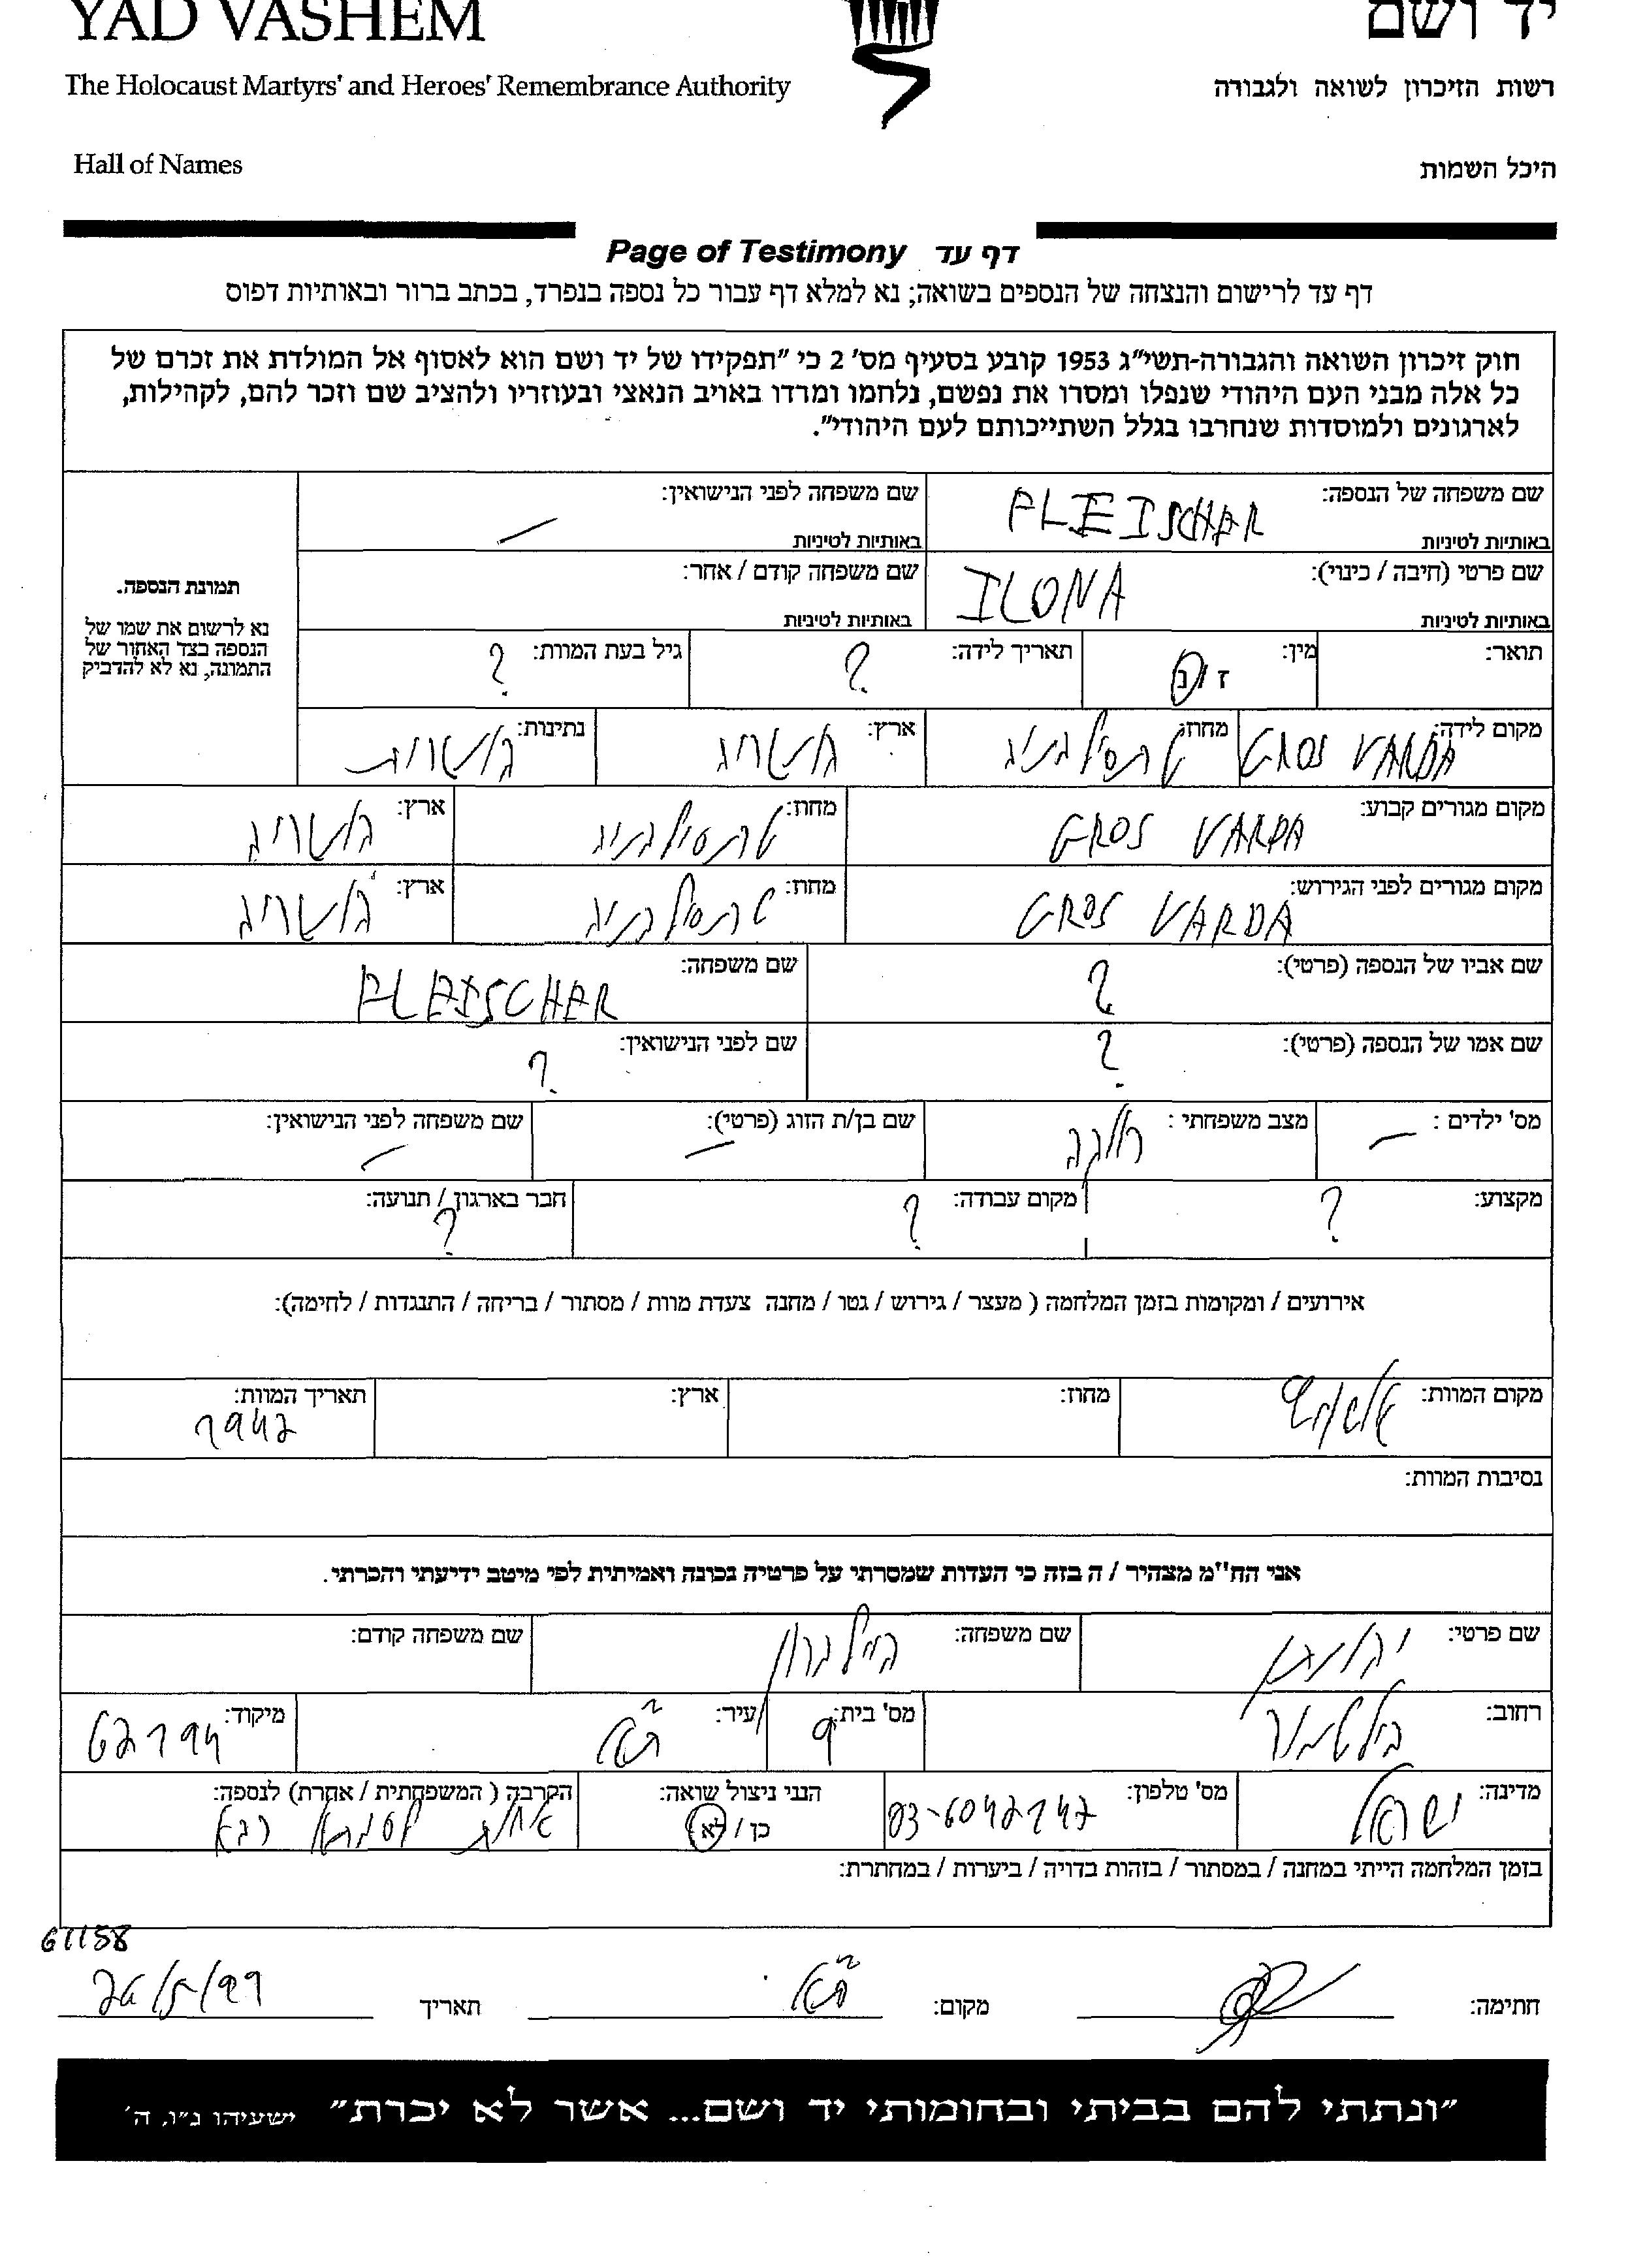 YAD VASHEM יד ושם
The Holocaust Martyrs' and Heroes' Remembrance Authority רשות הזיכרון לשואה ולגבורה
Hall of Names היכל השמות
Page of Testimony דף עד
דף עד לרישום והנצחה של הנספים בשואה; נא למלא דף עבור כל נספה בנפרד, בכתב ברור ובאותיות דפוס
חוק זיכרון השואה והגבורה-תשי"ג 1953 קובע בסעיף מס' 2 כי "תפקידו של יד ושם הוא לאסוף אל המולדת את זכרם של
כל אלה מבני העם היהודי שנפלו ומסרו את נפשם, נלחמו ומרדו באויב הנאצי ובעוזריו ולהציב שם וזכר להם, לקהילות,
לארגונים ולמוסדות שנחרבו בגלל השתייכותם לעם היהודי".
שם משפחה של הנספה: FLEISCHER שם משפחה לפני הנישואין: —
באותיות לטיניות באותיות לטיניות
שם פרטי (חיבה / כינוי): ILONA שם משפחה קודם / אחר:
באותיות לטיניות באותיות לטיניות
תמונת הנספה.
נא לרשום את שמו של
הנספה בצד האחור של
התמונה, נא לא להדביק
תואר: מין: ז / נ תאריך לידה: ? גיל בעת המוות: ?
מקום לידה: GROS VARDA מחוז: טרנסילבניה ארץ: הונגריה נתינות:
מקום מגורים קבוע: GROS VARDA מחוז: טרנסילבניה ארץ: הונגריה
מקום מגורים לפני הגירוש: GROS VARDA מחוז: טרנסילבניה ארץ: הונגריה
שם אביו של הנספה (פרטי): ? שם משפחה: FLEISCHER
שם אמו של הנספה (פרטי): ? שם לפני הנישואין: ?
מס' ילדים : — מצב משפחתי : רווקה שם בן/ת הזוג (פרטי): — שם משפחה לפני הנישואין: —
מקצוע: ? מקום עבודה: ? חבר בארגון / תנועה: ?
אירועים / ומקומות בזמן המלחמה ( מעצר / גירוש / גטו / מחנה צעדת מוות / מסתור / בריחה / התנגדות / לחימה):
מקום המוות: אושויץ מחוז: ארץ: תאריך המוות: 1942
נסיבות המוות:
אני הח"מ מצהיר / ה בזה כי העדות שמסרתי על פרטיה נכונה ואמיתית לפי מיטב ידיעתי והכרתי.
שם פרטי: יהונתן שם משפחה: היילברון שם משפחה קודם:
רחוב: בילטמור מס' בית: 9 עיר: ת"א מיקוד: 62194
מדינה: ישראל מס' טלפון: 03-6042142 הנני ניצול שואה: כן / לא הקרבה ( המשפחתית / אחרת) לנספה: אחות לסבתא רבא
בזמן המלחמה הייתי במחנה / במסתור / בזהות בדויה / ביערות / במחתרת:
61158
חתימה: מקום: ת"א תאריך 26/5/99
"ונתתי להם בביתי ובחומותי יד ושם... אשר לא יכרת" ישעיהו נ"ו, ה'